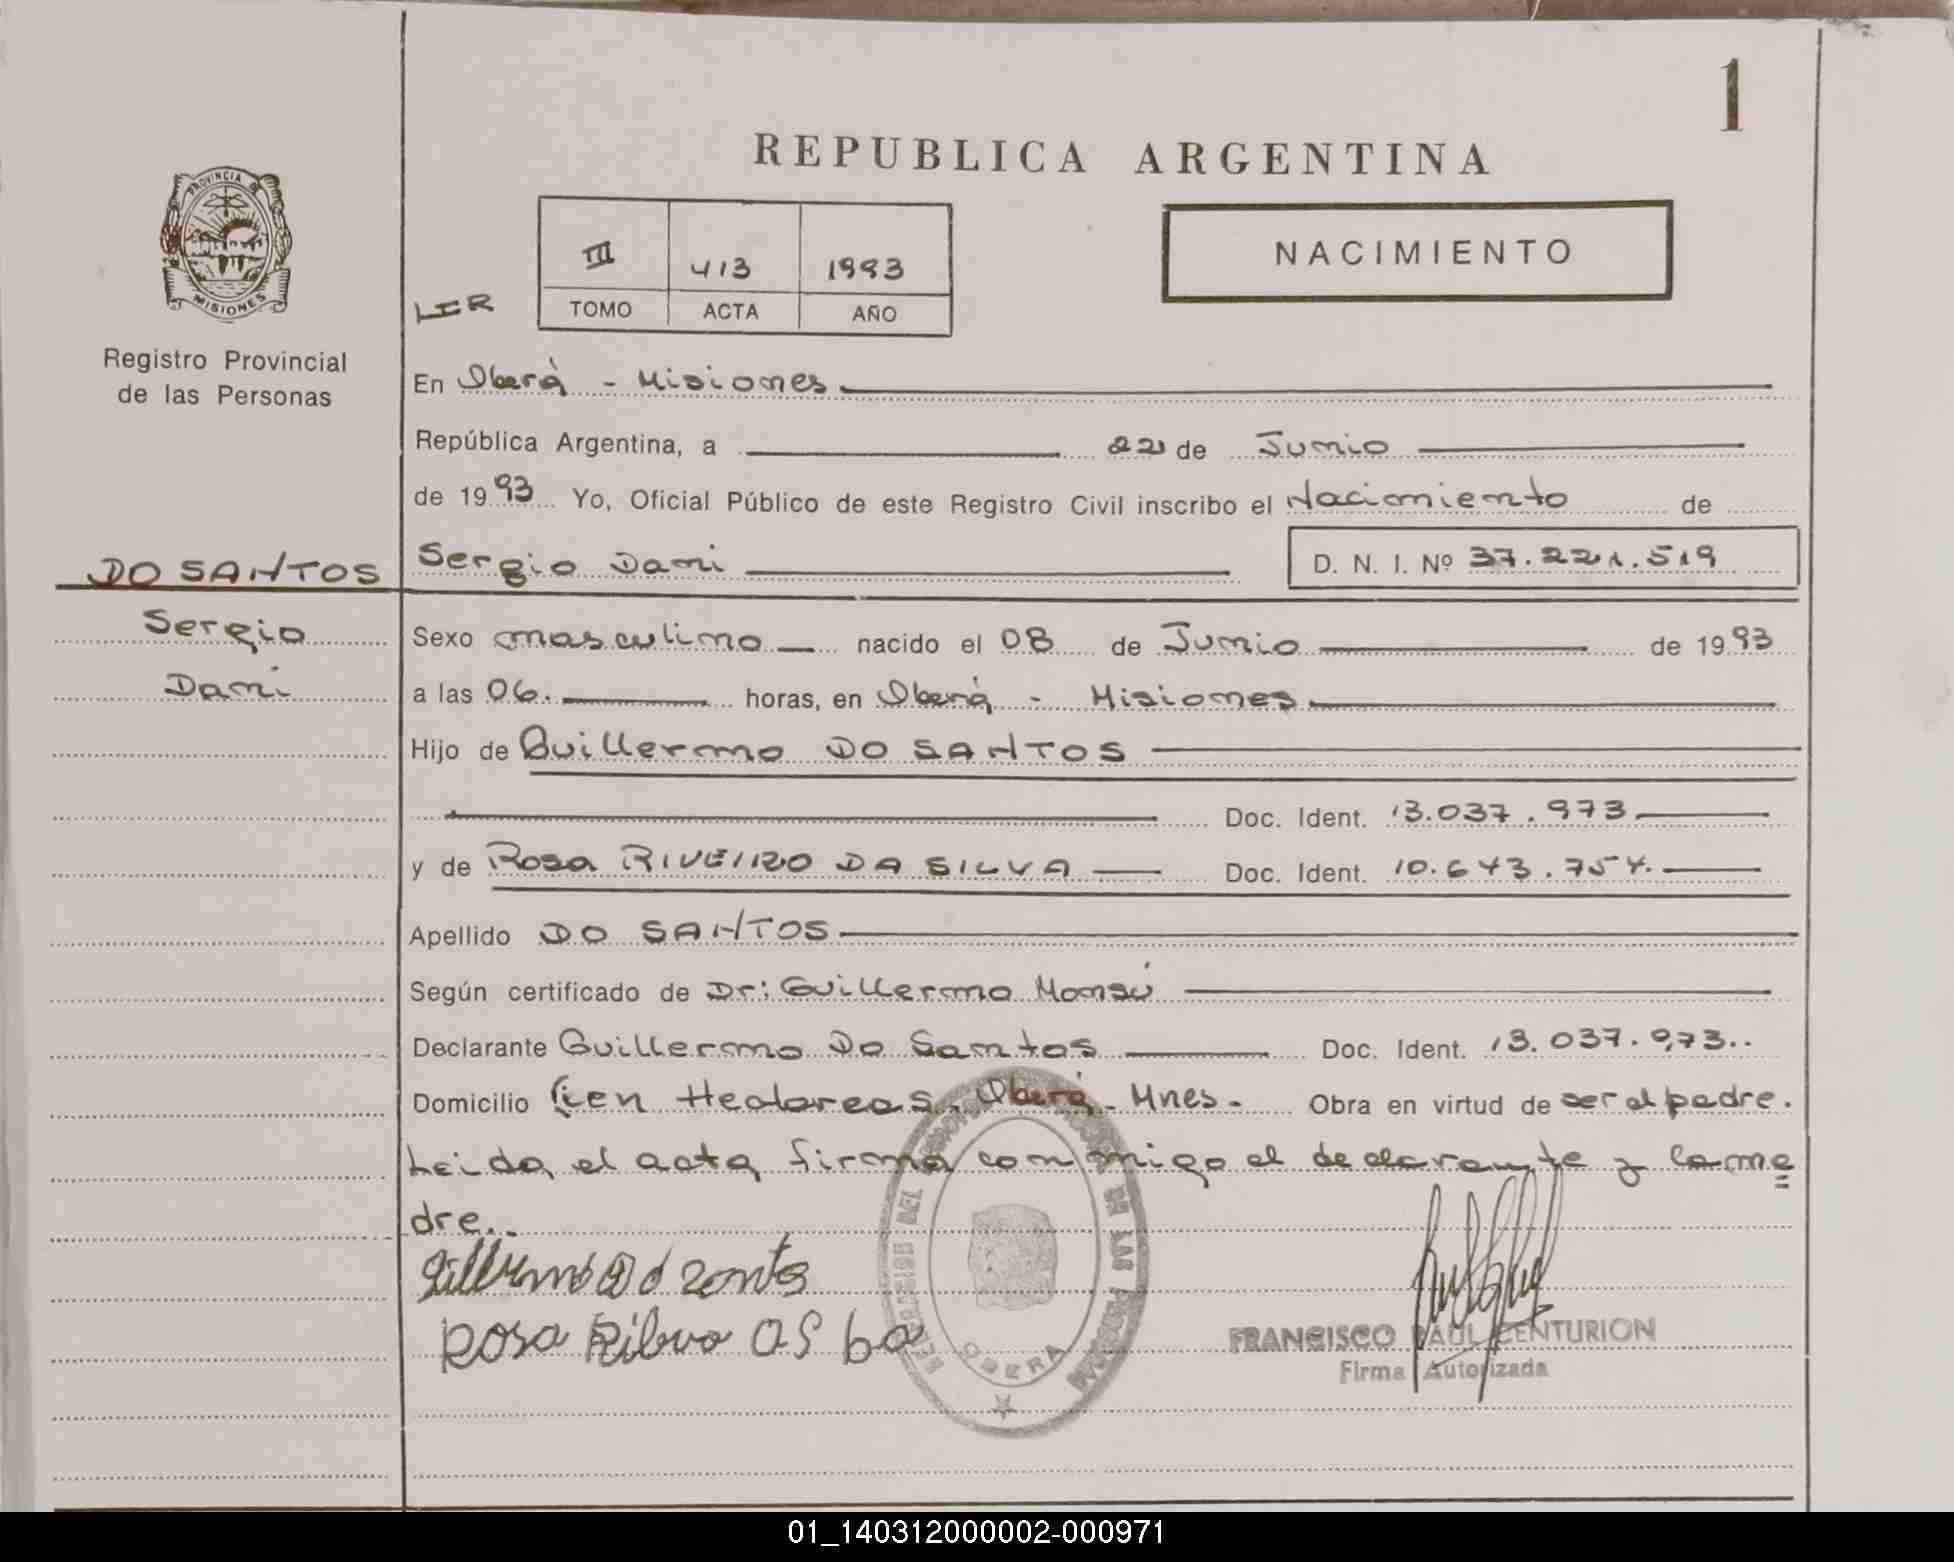 1
REPUBLICA ARGENTINA
PROVINCIA DE
MISIONES
Registro Provincial
de las Personas
III 413 1993
TOMO ACTA AÑO
NACIMIENTO
En Oberá - Misiones
República Argentina, a 22 de Junio
de 1993 Yo, Oficial Público de este Registro Civil inscribo el Nacimiento de
DO SANTOS Sergio Dani D. N. I. Nº 37.221.519
Sergio Sexo masculino nacido el 08 de Junio de 1993
Dani a las 06. horas, en Oberá - Misiones
Hijo de Guillermo DO SANTOS
Doc. Ident. 13.037.973
y de Rosa RIVEIRO DA SILVA Doc. Ident. 10.643.754.
Apellido DO SANTOS
Según certificado de Dr: Guillermo Monsú
Declarante Guillermo Do Santos Doc. Ident. 13.037.973..
Domicilio Cien Hectareas, Oberá - Mnes - Obra en virtud de ser el padre.
Leida el acta firma conmigo el declarante y la ma
dre..
Rosa
REGISTRO PROVINCIAL DE LAS PERSONAS
OBERA
FRANCISCO RAUL CENTURION
Firma Autorizada
01_140312000002-000971